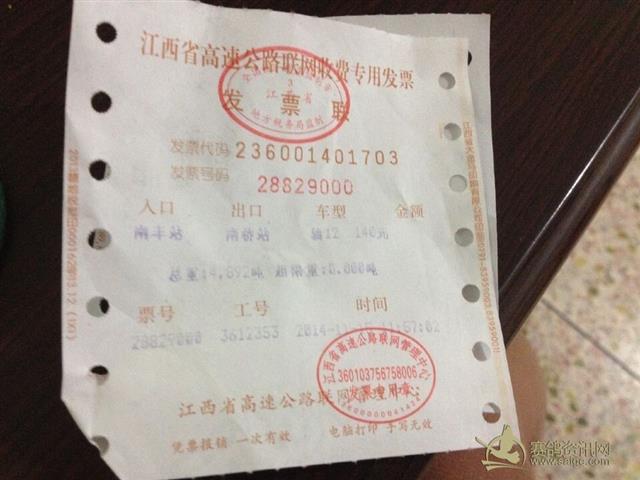 江西省高速公路联网收费专用发票
江西省
发票联
地方税务局监制
发票代码 236001401703
发票号码 28829000
入口 出口 车型 金额
南丰站 南桥站 12 140元
总重:4.892吨 超限重:0.000吨
票号 工号 时间
28829000 3612353 2014-11- 11:57:02
江西省高速公路联网管理中心
360103756758006
发票专用章
江西省高速公路联网管理中心
凭票报销 一次有效 电脑打印 手写无效
赛鸽资讯网
www.saige.com